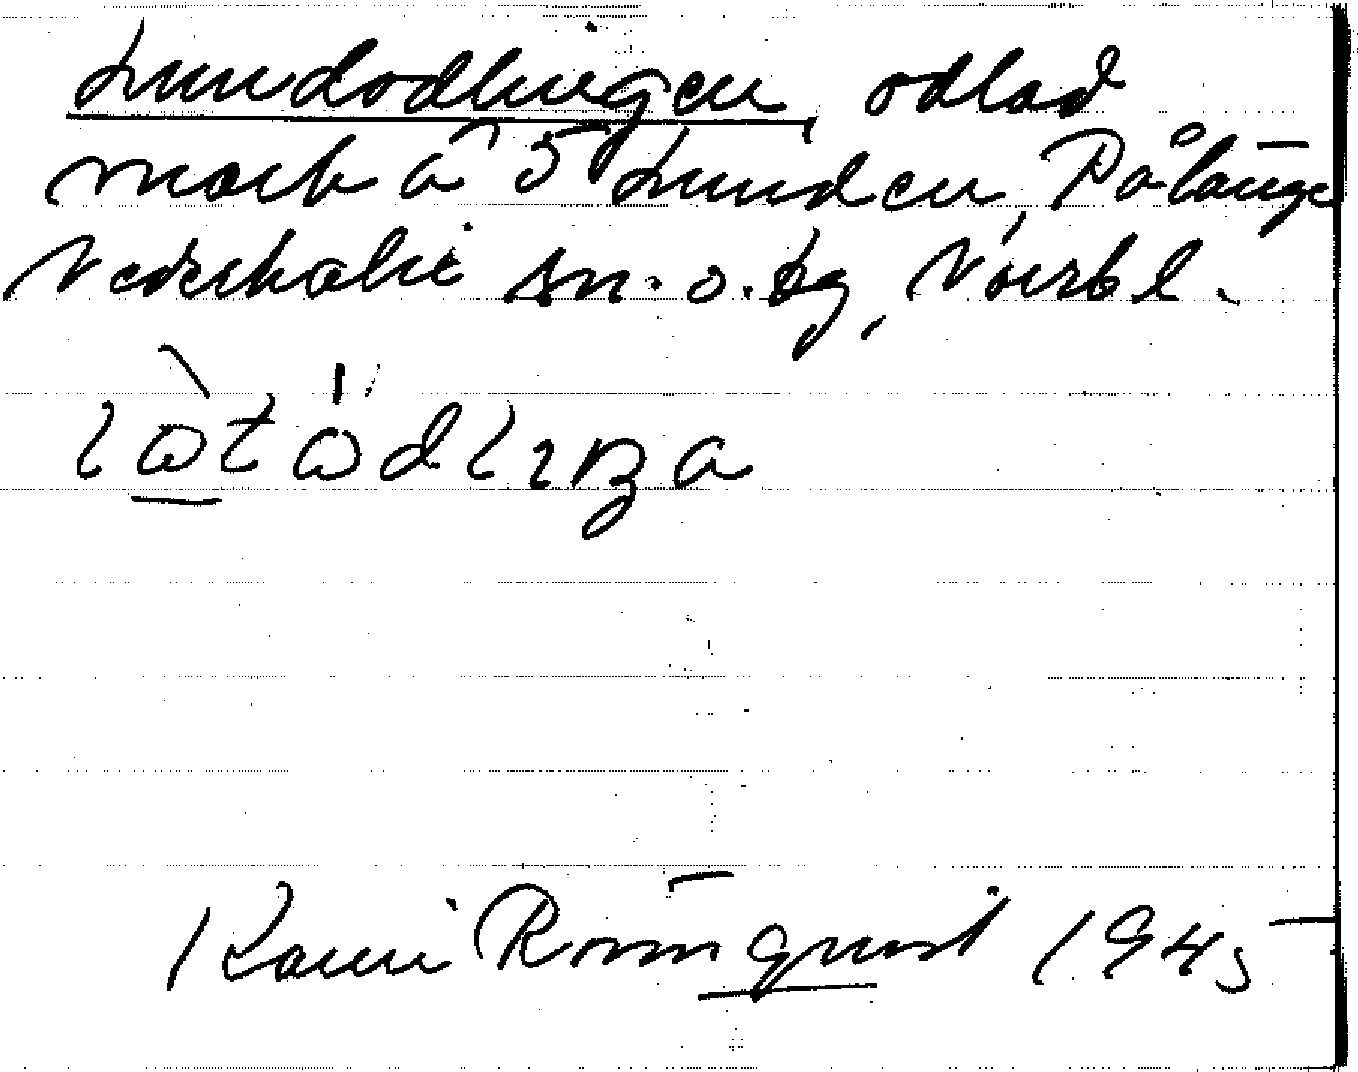 Lundodlingen, odlad
mark å 5 Lunden, Pålänge
Nederkalix sn. o. tg, Norrb l.
Karin Rönnquist 1945